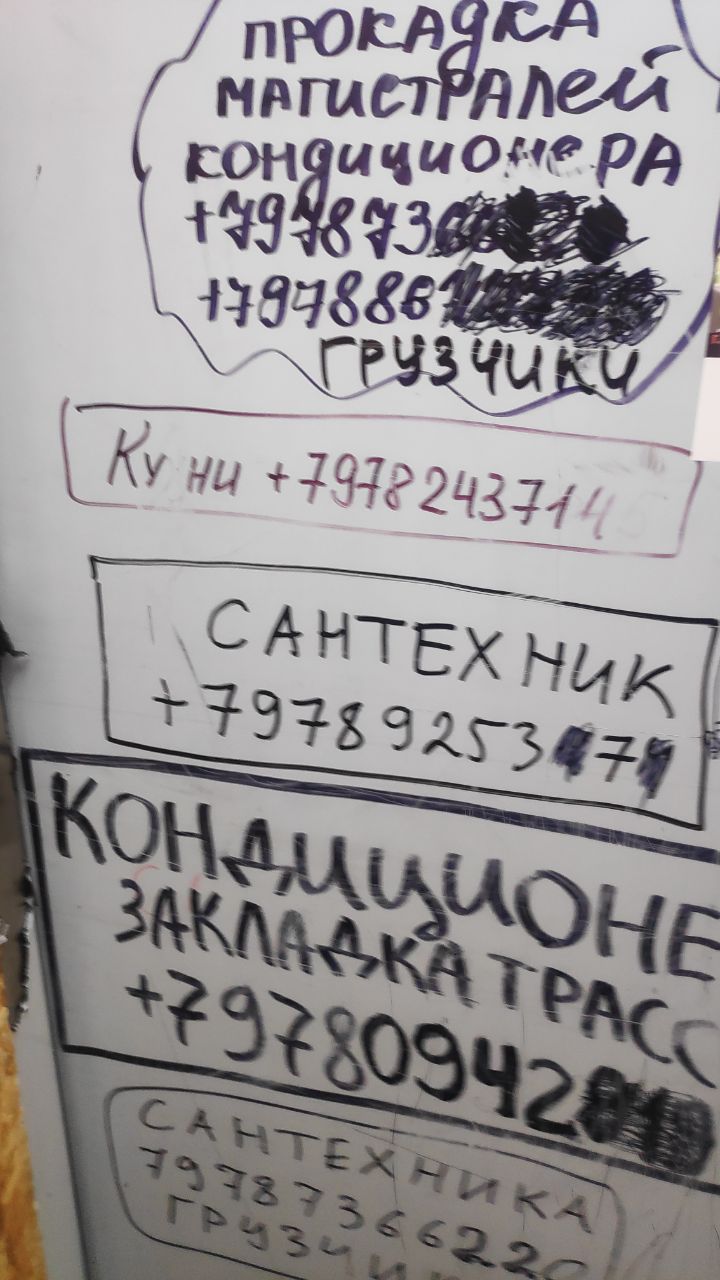 ПРОКАДКА
МАГИСТРАЛЕЙ
КОНДИЦИОНЕРА
+7978730
+7978867
ГРУЗЧИКИ
+79782437145
САНТЕХНИК
+79789253
КОНДИЦИОНЕ
ЗАКЛАДКА ТРАСС
+79780942
САНТЕХНИКА
79787366220
ГРУЗЧИК